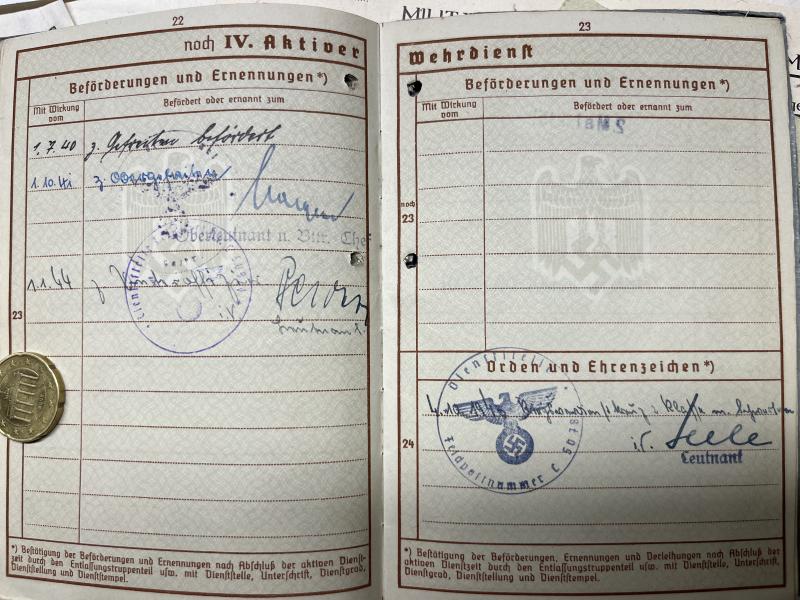 MILIT
22
noch IV. Aktiver
Beförderungen und Ernennungen*)
Mit Wirkung vom
Befördert oder ernannt zum
1.7.40 z. Gefreiten befördert
1.10.41 z. Obergefreiten
Oberleutnant u. Battr.-Chef
1.1.44 z.
Leutnant
23
*) Bestätigung der Beförderungen und Ernennungen nach Abschluß der aktiven Dienst-
zeit durch den Entlassungstruppenteil usw. mit Dienststelle, Unterschrift, Dienstgrad,
Dienststellung und Dienststempel.
23
Wehrdienst
Beförderungen und Ernennungen*)
Mit Wirkung vom
Befördert oder ernannt zum
noch
23
Orden und Ehrenzeichen*)
Dienststelle
Feldpostnummer
Klasse m. Schwertern
Leutnant
24
*) Bestätigung der Beförderungen, Ernennungen und Verleihungen nach Abschluß der
aktiven Dienstzeit durch den Entlassungstruppenteil usw. mit Dienststelle, Unterschrift,
Dienstgrad, Dienststellung und Dienststempel.